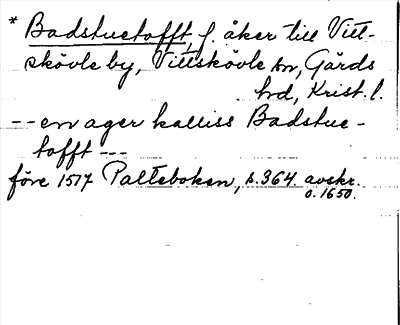 * Badstuetofft, f. åker till Vitt-
skövle by, Vittskövle sn, Gärds
hd, Krist. l.
-- en ager kalliss Badstue-
tofft ---
före 1517 Palteboken, s. 364. avskr.
o. 1650.